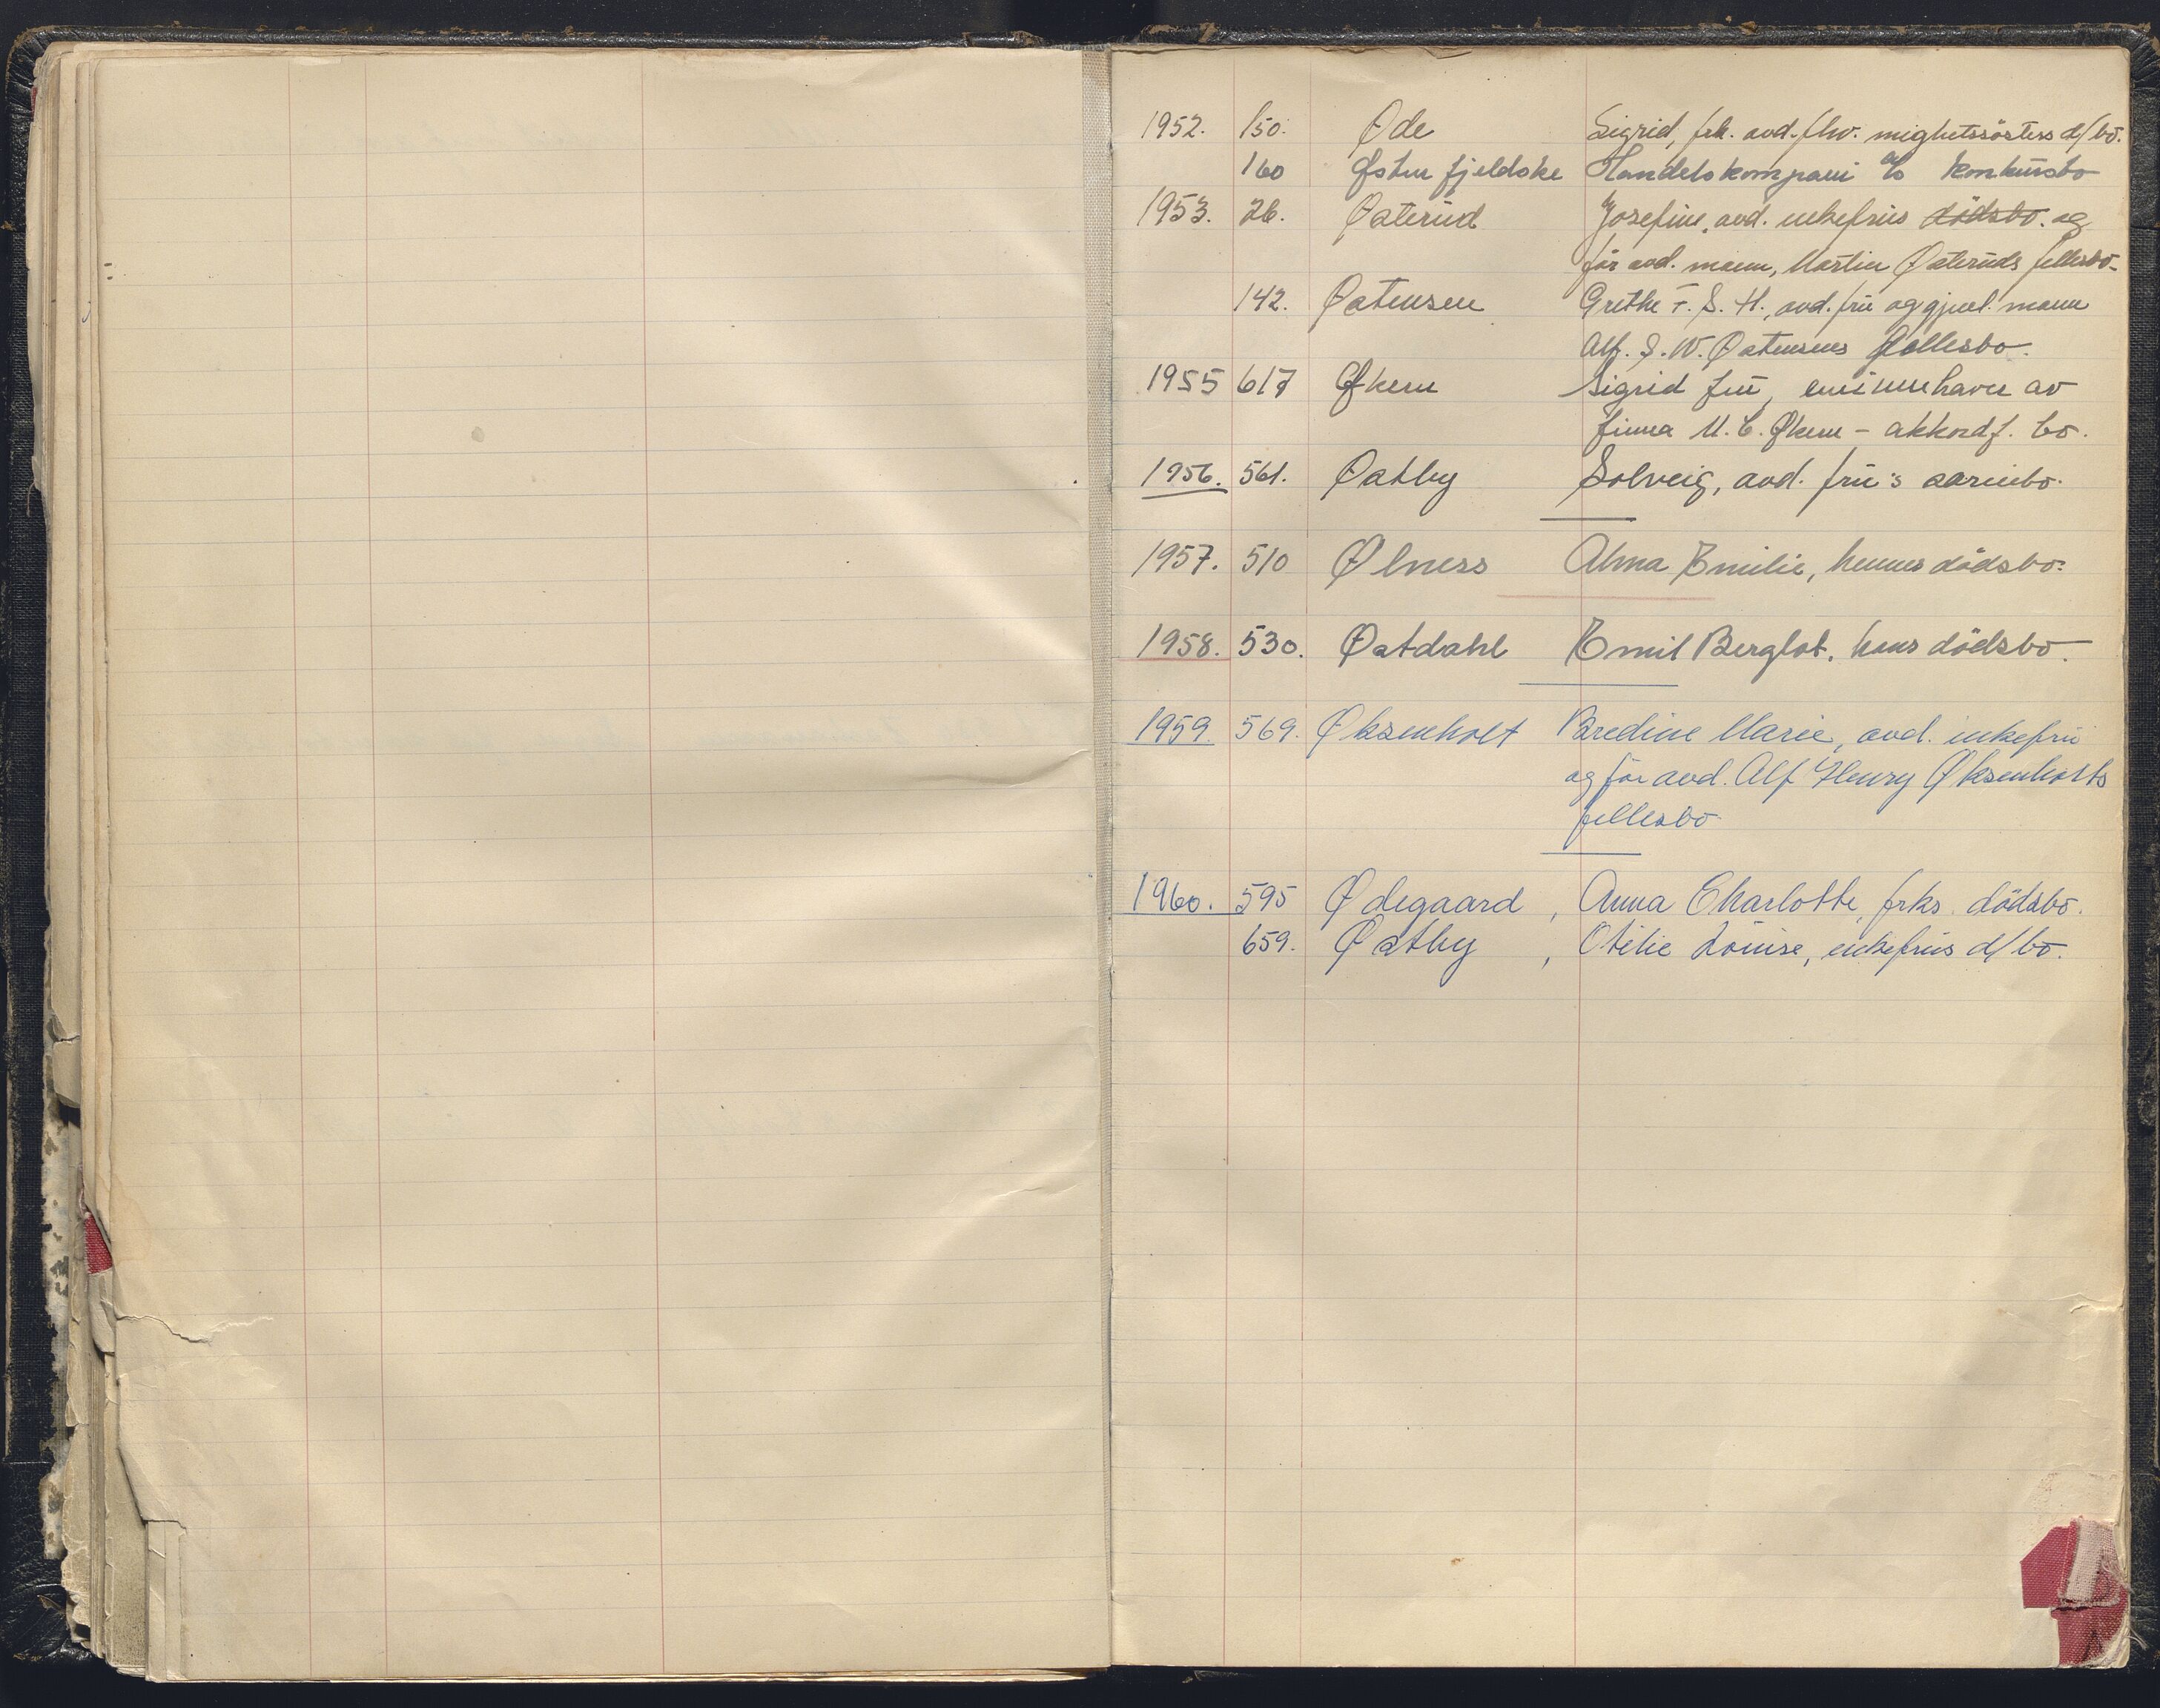 1952. 150. Øde Sigrid, frk. avd. fhv. d/bo.
160 Østenfjeldske Handelskompani A/s konkursbo
1953. 26. Østerud Josefine, avd. enkefrus dødsbo. og
før avd. mann, Martin Østeruds fellesbo.
142. Østensen Grethe F. S. H., avd. fru og gjenl. mann
Alf. S. W. Østensens fellesbo.
1955 617 Økern Sigrid fru, eneinnehaver av
firma M. C. Økern - akkordf. bo.
1956. 561. Østby Solveig, avd. fru's særeiebo.
1957. 510 Ølness Alma Emilie, hennes dødsbo.
1958. 530. Østdahl Emil Berglot, hans dødsbo.
1959. 569. Øksenholt Bredine Marie, avd. enkefru
og før avd. Alf Henry Øksenholts
fellesbo
1960. 595 Ødegaard, Anna Charlotte, frks. dødsbo.
659. Østby, Otilie Louise, enkefrus d/bo.